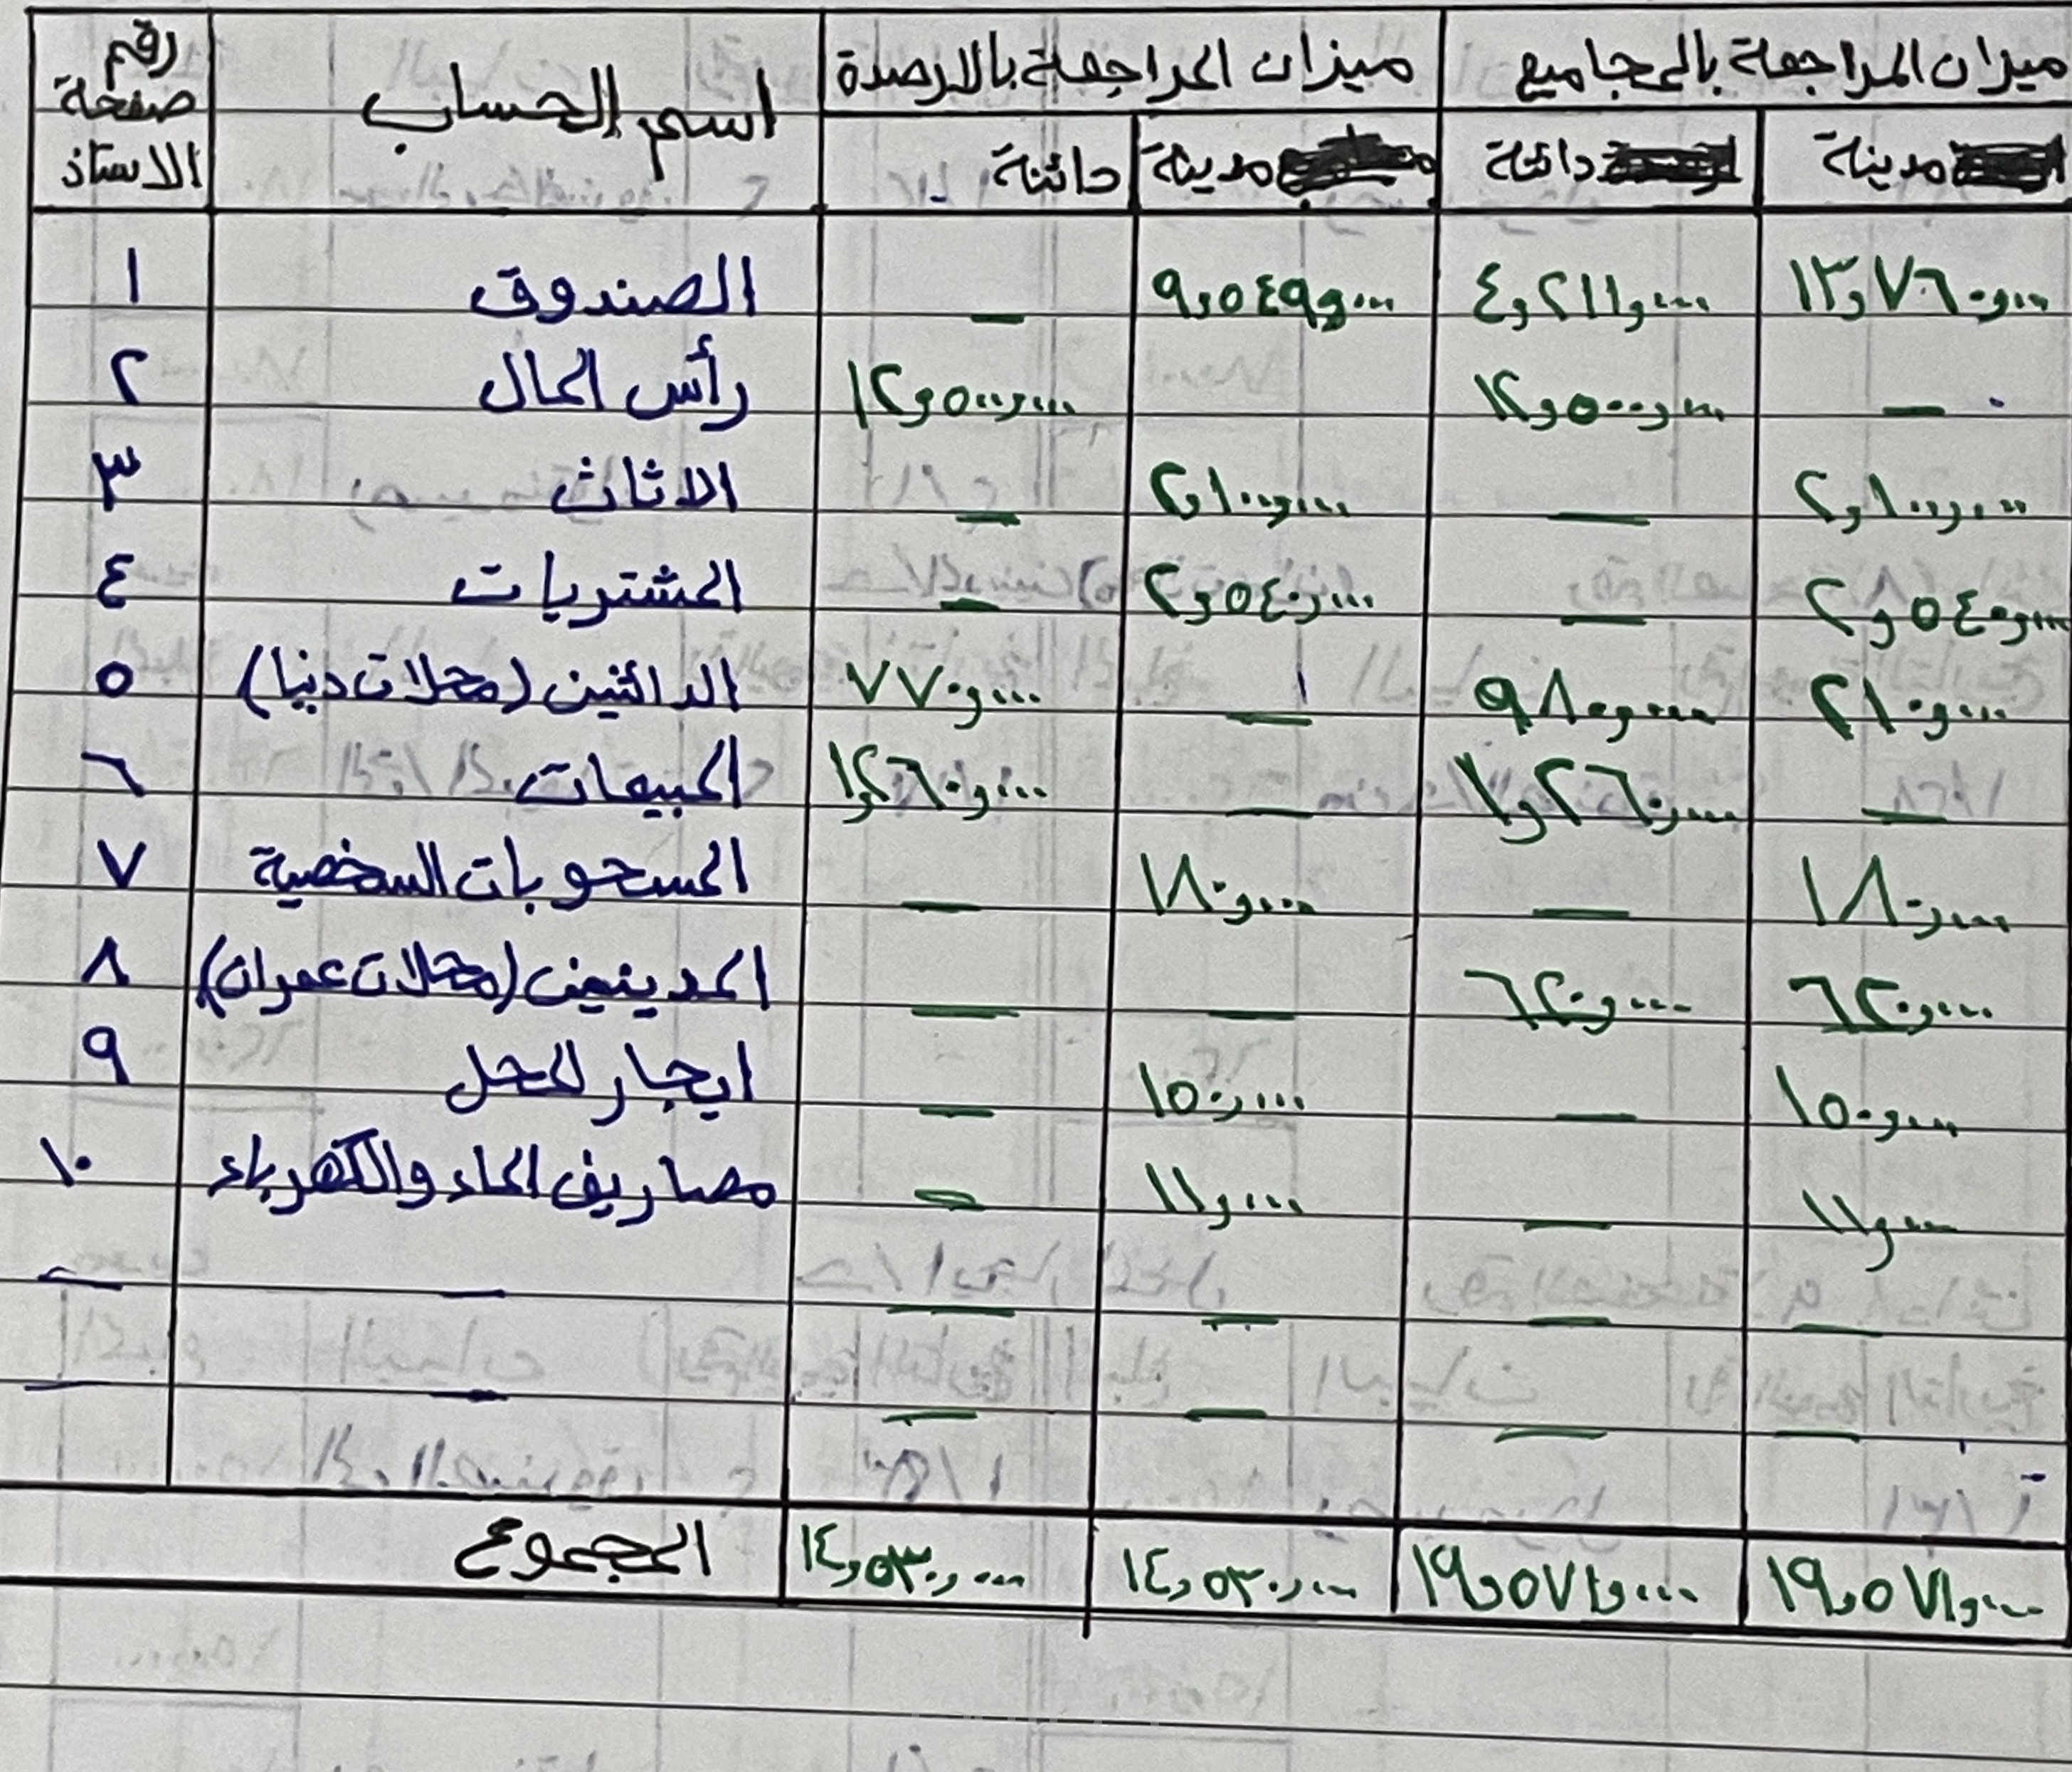 ميزان المراجعة بالمجاميع ميزان المراجعة بالارصدة اسم الحساب رقم صفحة الاستاذ
مدينة دائنة مدينة دائنة
١٣,٧٦٠,٠٠٠ ٤,٢١١,٠٠٠ ٩,٥٤٩,٠٠٠ — الصندوق ١
— ١٢,٥٠٠,٠٠٠ ١٢,٥٠٠,٠٠٠ رأس المال ٢
٢,١٠٠,٠٠٠ — ٢,١٠٠,٠٠٠ — الاثاث ٣
٢,٥٤٠,٠٠٠ — ٢,٥٤٠,٠٠٠ — المشتريات ٤
٢١٠,٠٠٠ ٩٨٠,٠٠٠ — ٧٧٠,٠٠٠ الدائنين (محلات دنيا) ٥
— ١,٢٦٠,٠٠٠ — ١,٢٦٠,٠٠٠ المبيعات ٦
١٨٠,٠٠٠ — ١٨٠,٠٠٠ — المسحوبات الشخصية ٧
٦٢٠,٠٠٠ ٦٢٠,٠٠٠ — — المدينين (محلات عمران) ٨
١٥٠,٠٠٠ — ١٥٠,٠٠٠ — ايجار المحل ٩
١١,٠٠٠ — ١١,٠٠٠ — مصاريف الماء والكهرباء ١٠
— — — — — —
— — — — — —
١٩,٥٧١,٠٠٠ ١٩,٥٧١,٠٠٠ ١٤,٥٣٠,٠٠٠ ١٤,٥٣٠,٠٠٠ المجموع